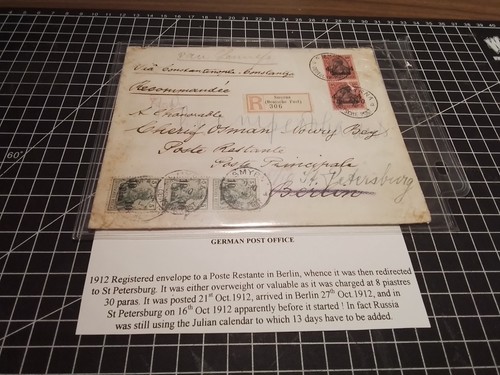 Via Constantinople Constanza
Recommandée
R
Smyrna
(Deutsche Post)
306
A l'honorable
Chérif Osman Noury Bey
Poste Restante
Poste Principale
St. Petersburg
Berlin
SMYRNA
GERMAN POST OFFICE
1912 Registered envelope to a Poste Restante in Berlin, whence it was then redirected
to St Petersburg. It was either overweight or valuable as it was charged at 8 piastres
30 paras. It was posted 21st Oct.1912, arrived in Berlin 27th Oct.1912, and in
St Petersburg on 16th Oct 1912 apparently before it started ! In fact Russia
was still using the Julian calendar to which 13 days have to be added.
60°